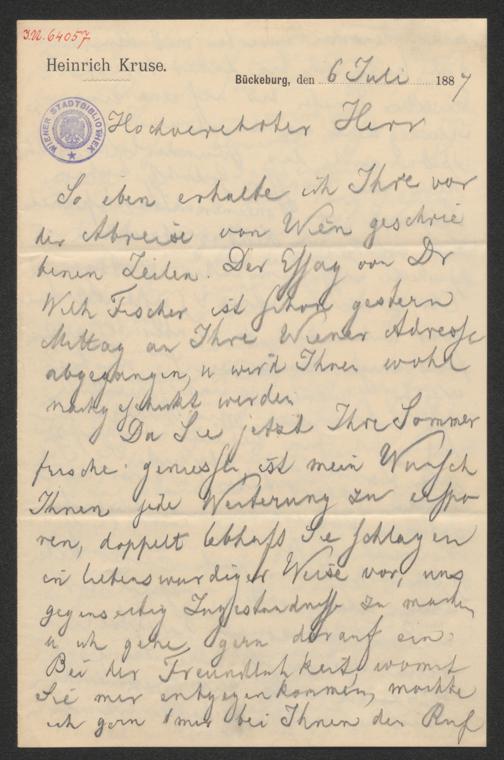 J.N. 64057
Heinrich Kruse.
Bückeburg, den 6 Juli 1887
WIENER STADTBIBLIOTHEK
Hochverehrter Herr
So eben erhalte ich Ihre vor
der Abreise von Wien geschrie
benen Zeilen. Der Essay von Dr
Wilh Fischer ist schon gestern
Mittag an Ihre Wiener Adresse
abgegangen, u wird Ihnen wohl
nachgeschickt werden
Da Sie jetzt Ihre Sommer
frische geniessen, ist mein Wunsch
Ihnen jede Weiterung zu erspa
ren, doppelt lebhaft. Sie schlagen
in liebenswürdiger Weise vor, uns
gegenseitig Zugeständnisse zu machen
u ich gehe gern darauf ein.
Bei der Freundlichkeit, womit
Sie mir entgegenkommen, möchte
ich gern mir bei Ihnen den Ruf